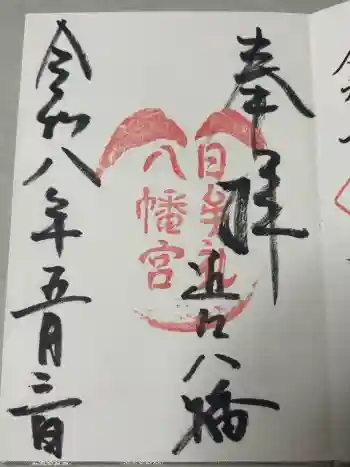 奉拝
近江八幡
日牟禮
八幡宮
令和八年五月三日